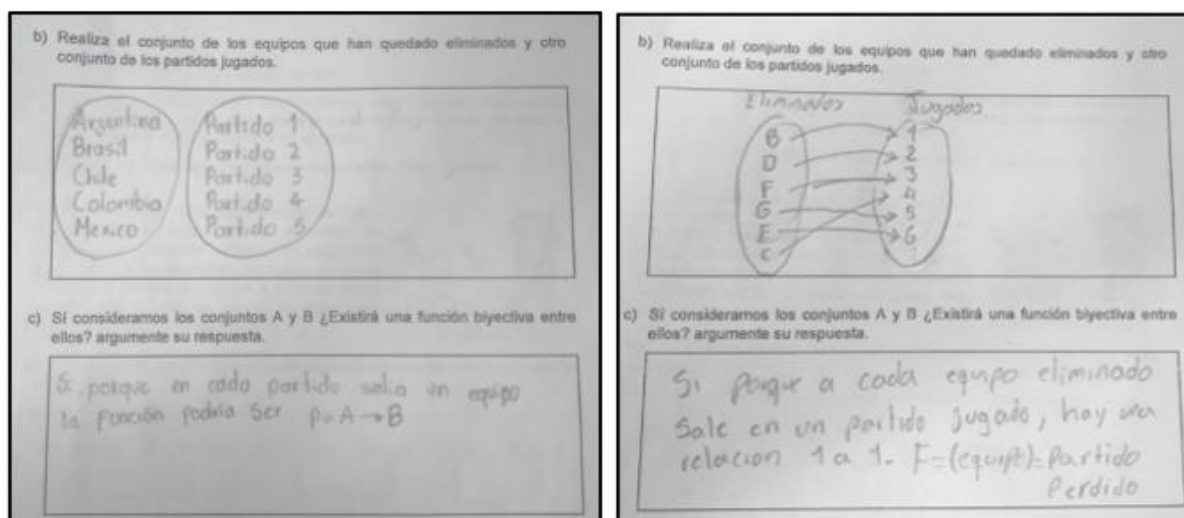 b) Realiza el conjunto de los equipos que han quedado eliminados y otro
conjunto de los partidos jugados.
Argentina
Brasil
Chile
Colombia
Mexico
Partido 1
Partido 2
Partido 3
Partido 4
Partido 5
c) Sí consideramos los conjuntos A y B ¿Existirá una función biyectiva entre
ellos? argumente su respuesta.
Si, porque en cada partido salia un equipo
la función podria ser A → B
b) Realiza el conjunto de los equipos que han quedado eliminados y otro
conjunto de los partidos jugados.
Eliminados
B
D
F
G
E
C
Jugados
1
2
3
4
5
6
c) Sí consideramos los conjuntos A y B ¿Existirá una función biyectiva entre
ellos? argumente su respuesta.
Si porque a cada equipo eliminado
Sale en un partido jugado, hay una
relacion 1 a 1. F=(equipo)=Partido
Perdido